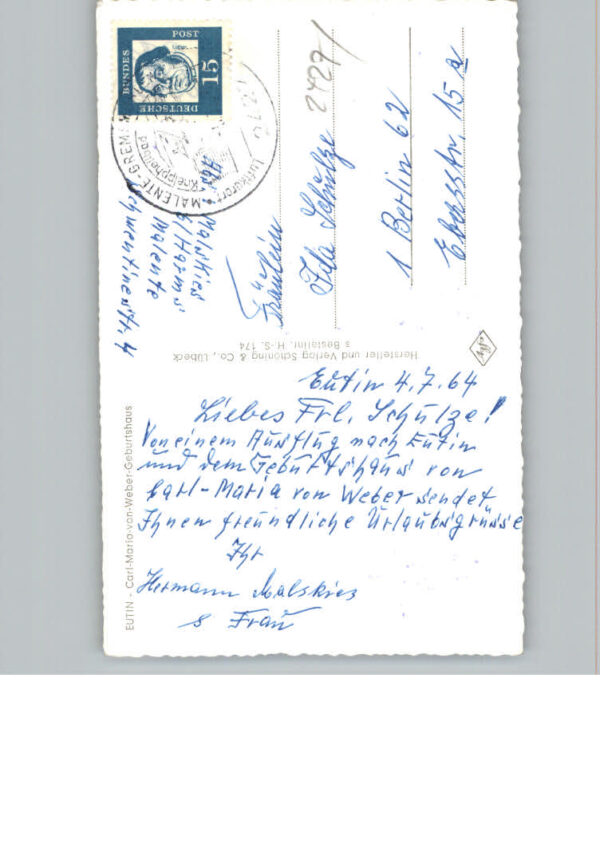 Eutin 4.7.64
Liebes Frl. Schulze!
Von einem Ausflug nach Eutin
und dem Geburtshaus von
Carl-Maria von Weber sendet
Ihnen freundliche Urlaubsgrüsse
Ihr
Hermann Malskies
& Frau
EUTIN - Carl-Maria-von-Weber-Geburtshaus
Hersteller und Verlag Schöning & Co., Lübeck
Bestellnr. H.-S. 174
Fräulein
Schulze
1 Berlin 62
15 a
2427/
Malskies
b/Harms
Malente
Schwentinestr. 4
DEUTSCHE
BUNDES
POST
15
MALENTE-GREMS
Luftkurort
Kneippheilbad